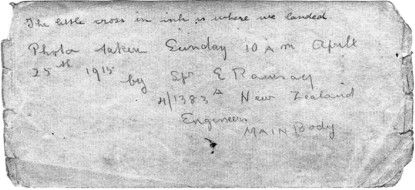 The little cross in ink is where we landed
Photo taken Sunday 10 AM April
25th 1915
by Spr E Ramsay
4/1383A New Zealand
Engineers
MAIN Body